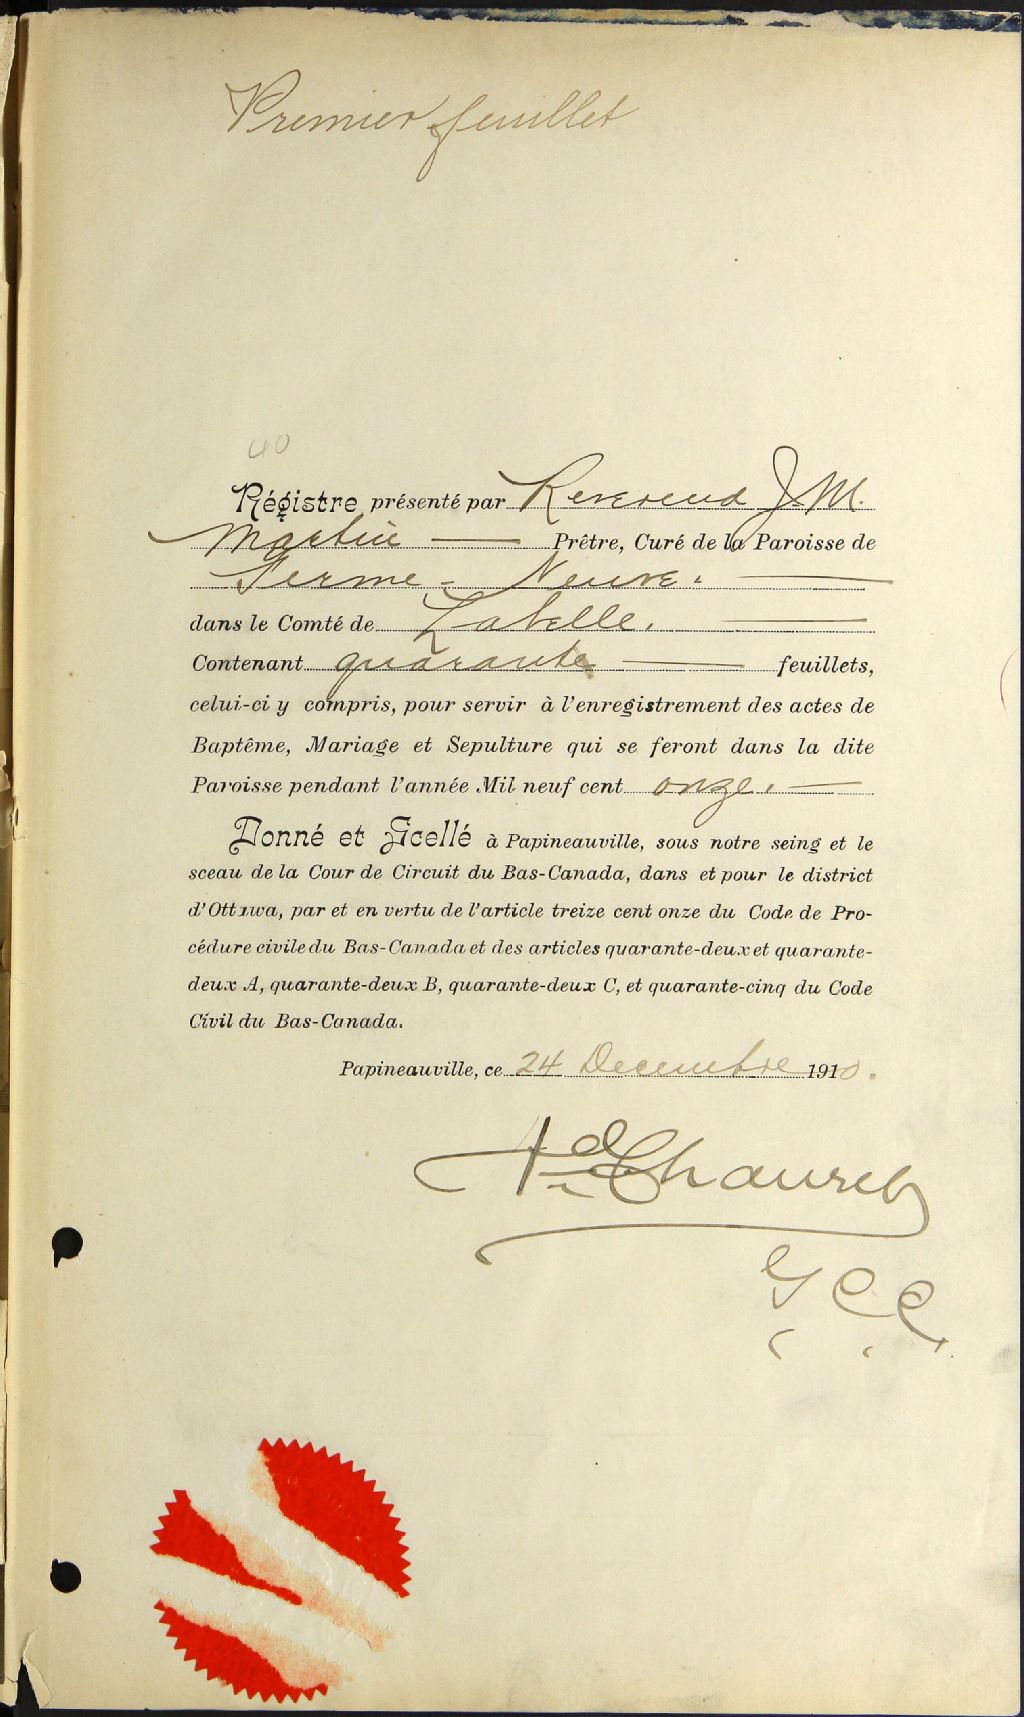 Premier feuillet
40
Régistre présenté par Reverend J. M.
Martin — Prêtre, Curé de la Paroisse de
Ferme-Neuve. —
dans le Comté de Labelle. —
Contenant quarante — feuillets,
celui-ci y compris, pour servir à l'enregistrement des actes de
Baptême, Mariage et Sepulture qui se feront dans la dite
Paroisse pendant l'année Mil neuf cent onze. —
Donné et Scellé à Papineauville, sous notre seing et le
sceau de la Cour de Circuit du Bas-Canada, dans et pour le district
d'Ottawa, par et en vertu de l'article treize cent onze du Code de Pro-
cédure civile du Bas-Canada et des articles quarante-deux et quarante-
deux A, quarante-deux B, quarante-deux C, et quarante-cinq du Code
Civil du Bas-Canada.
Papineauville, ce 24 Decembre 1910.
Ad Chauret
G C C